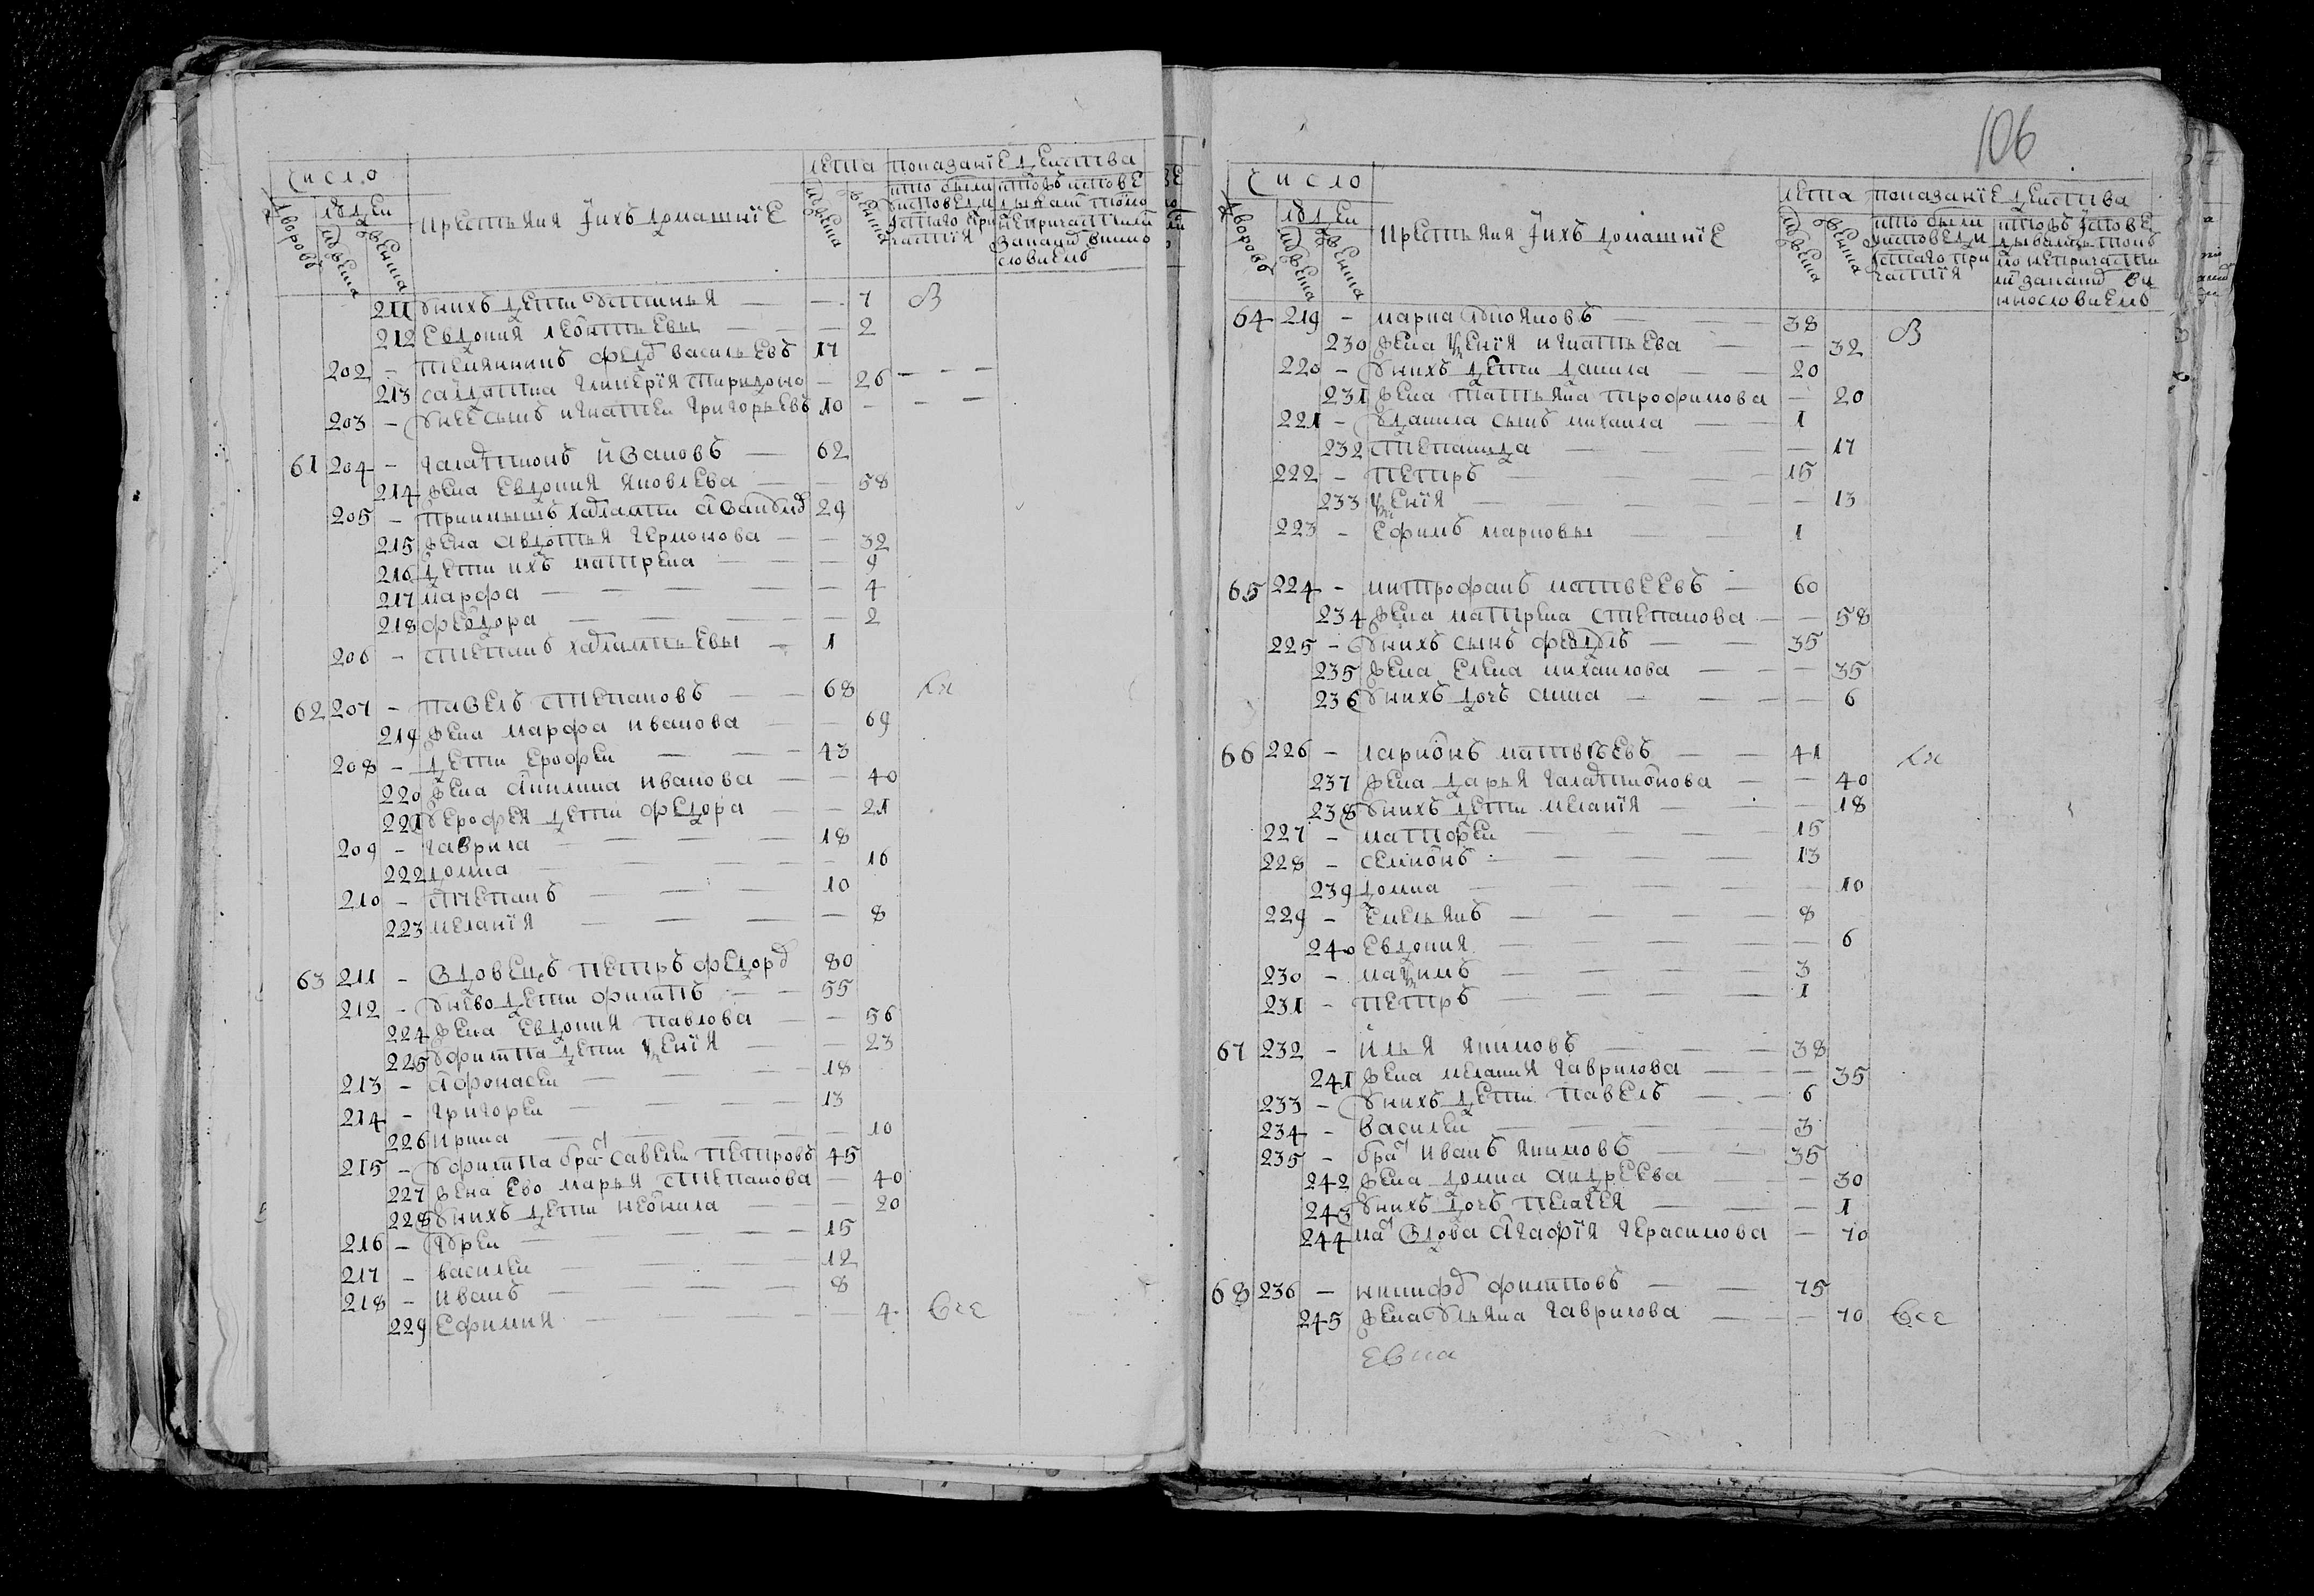 число
дворовъ
людей
мужеска
женска
крестьяня и ихъ домашние
лета
мужеска
женска
показание действа
кто были исповеди и святаго причастия
кто исповедывались токмо не причастили
за каким винословием
211 у них дети устинья — — 7 В
212 Евдокия леонтьевы — — 2
202 - племянникъ федоръ васильевъ 17
213 салдатка гликерия спиридоно — 26 — — —
203 - у нее сынъ игнатей григорьевъ 10 - — —
61 204 - галактионъ ивановъ — 62
214 жена Евдокия яковлева — — 58
205 - приимышъ 29
215 жена авдотья — — 32
216 дети ихъ матрена — — 9
217 марфа — — — — 4
218 федора — — — — 2
206 - степанъ — 1
62 207 - павелъ степановъ — — 68
219 жена марфа иванова — — 69
208 - дети ерофеи — — — 43
220 жена акилина иванова — — 40
221 у ерофея дети федора — — 21
209 - гаврила — — — 18
222 домна — — — 16
210 - степанъ — — — 10
223 мелания — — — — 8
63 211 - вдовецъ петръ федоръ 80
212 - у нево дети филиппъ — — 55
224 жена Евдокия павлова — — 56
225 у филиппа дети ксения — — 23
213 - афонасеи — — — 18
214 - григореи — — — 13
226 ирина — — — — 10
215 - у филиппа братъ савелеи петровъ 45
227 жена ево марья степанова — 40
228 у нихъ дети неонила — — 20
216 - андреи — — — 15
217 - василеи — — — 12
218 - иванъ — — — 8
229 ефимия — — — 4 все
106
число
дворовъ
людей
мужеска
женска
крестьяня и ихъ домашние
лета
мужеска
женска
показание действа
кто были исповеди и святаго причастия
кто исповедывались токмо не причастили
за каким винословием
64 219 - марка лукояновъ — — 38 В
230 жена ксения игнатьева — — 32
220 - у нихъ дети данила — — 20
231 жена татьяна трофимова — 20
221 - у данила сынъ михаила — — 1
232 степанида — — — — 17
222 - петръ — — — 15
233 ксения — — — — 13
223 - ефимъ марковы — — 1
65 224 - митрофанъ матвеевъ — 60
234 жена матрена степанова — — 58
225 - у нихъ сынъ — — 35
235 жена елена михаилова — — 35
236 у нихъ дочь анна — — — 6
66 226 - ларионъ матвеевъ — — 41
237 жена дарья галактионова — — 40
238 у нихъ дети мелания — — — 18
227 - матфеи — — — 15
228 - семионъ — — — 13
239 домна — — — — 10
229 - емельянъ — — — 8
240 евдокия — — — — 6
230 - максимъ — — — 3
231 - петръ — — — 1
67 232 - илья якимовъ — — — 38
241 жена мелания гаврилова — — 35
233 - у нихъ дети павелъ — — 6
234 - василеи — — — 3
235 - братъ иванъ якимовъ — — 35
242 жена домна андреева — — 30
243 у нихъ дочь пелагея — — — 1
244 мать вдова агафия герасимова — 70
68 236 - никифоръ филиповъ — — 75
245 жена ульяна гаврилова — — 70 все